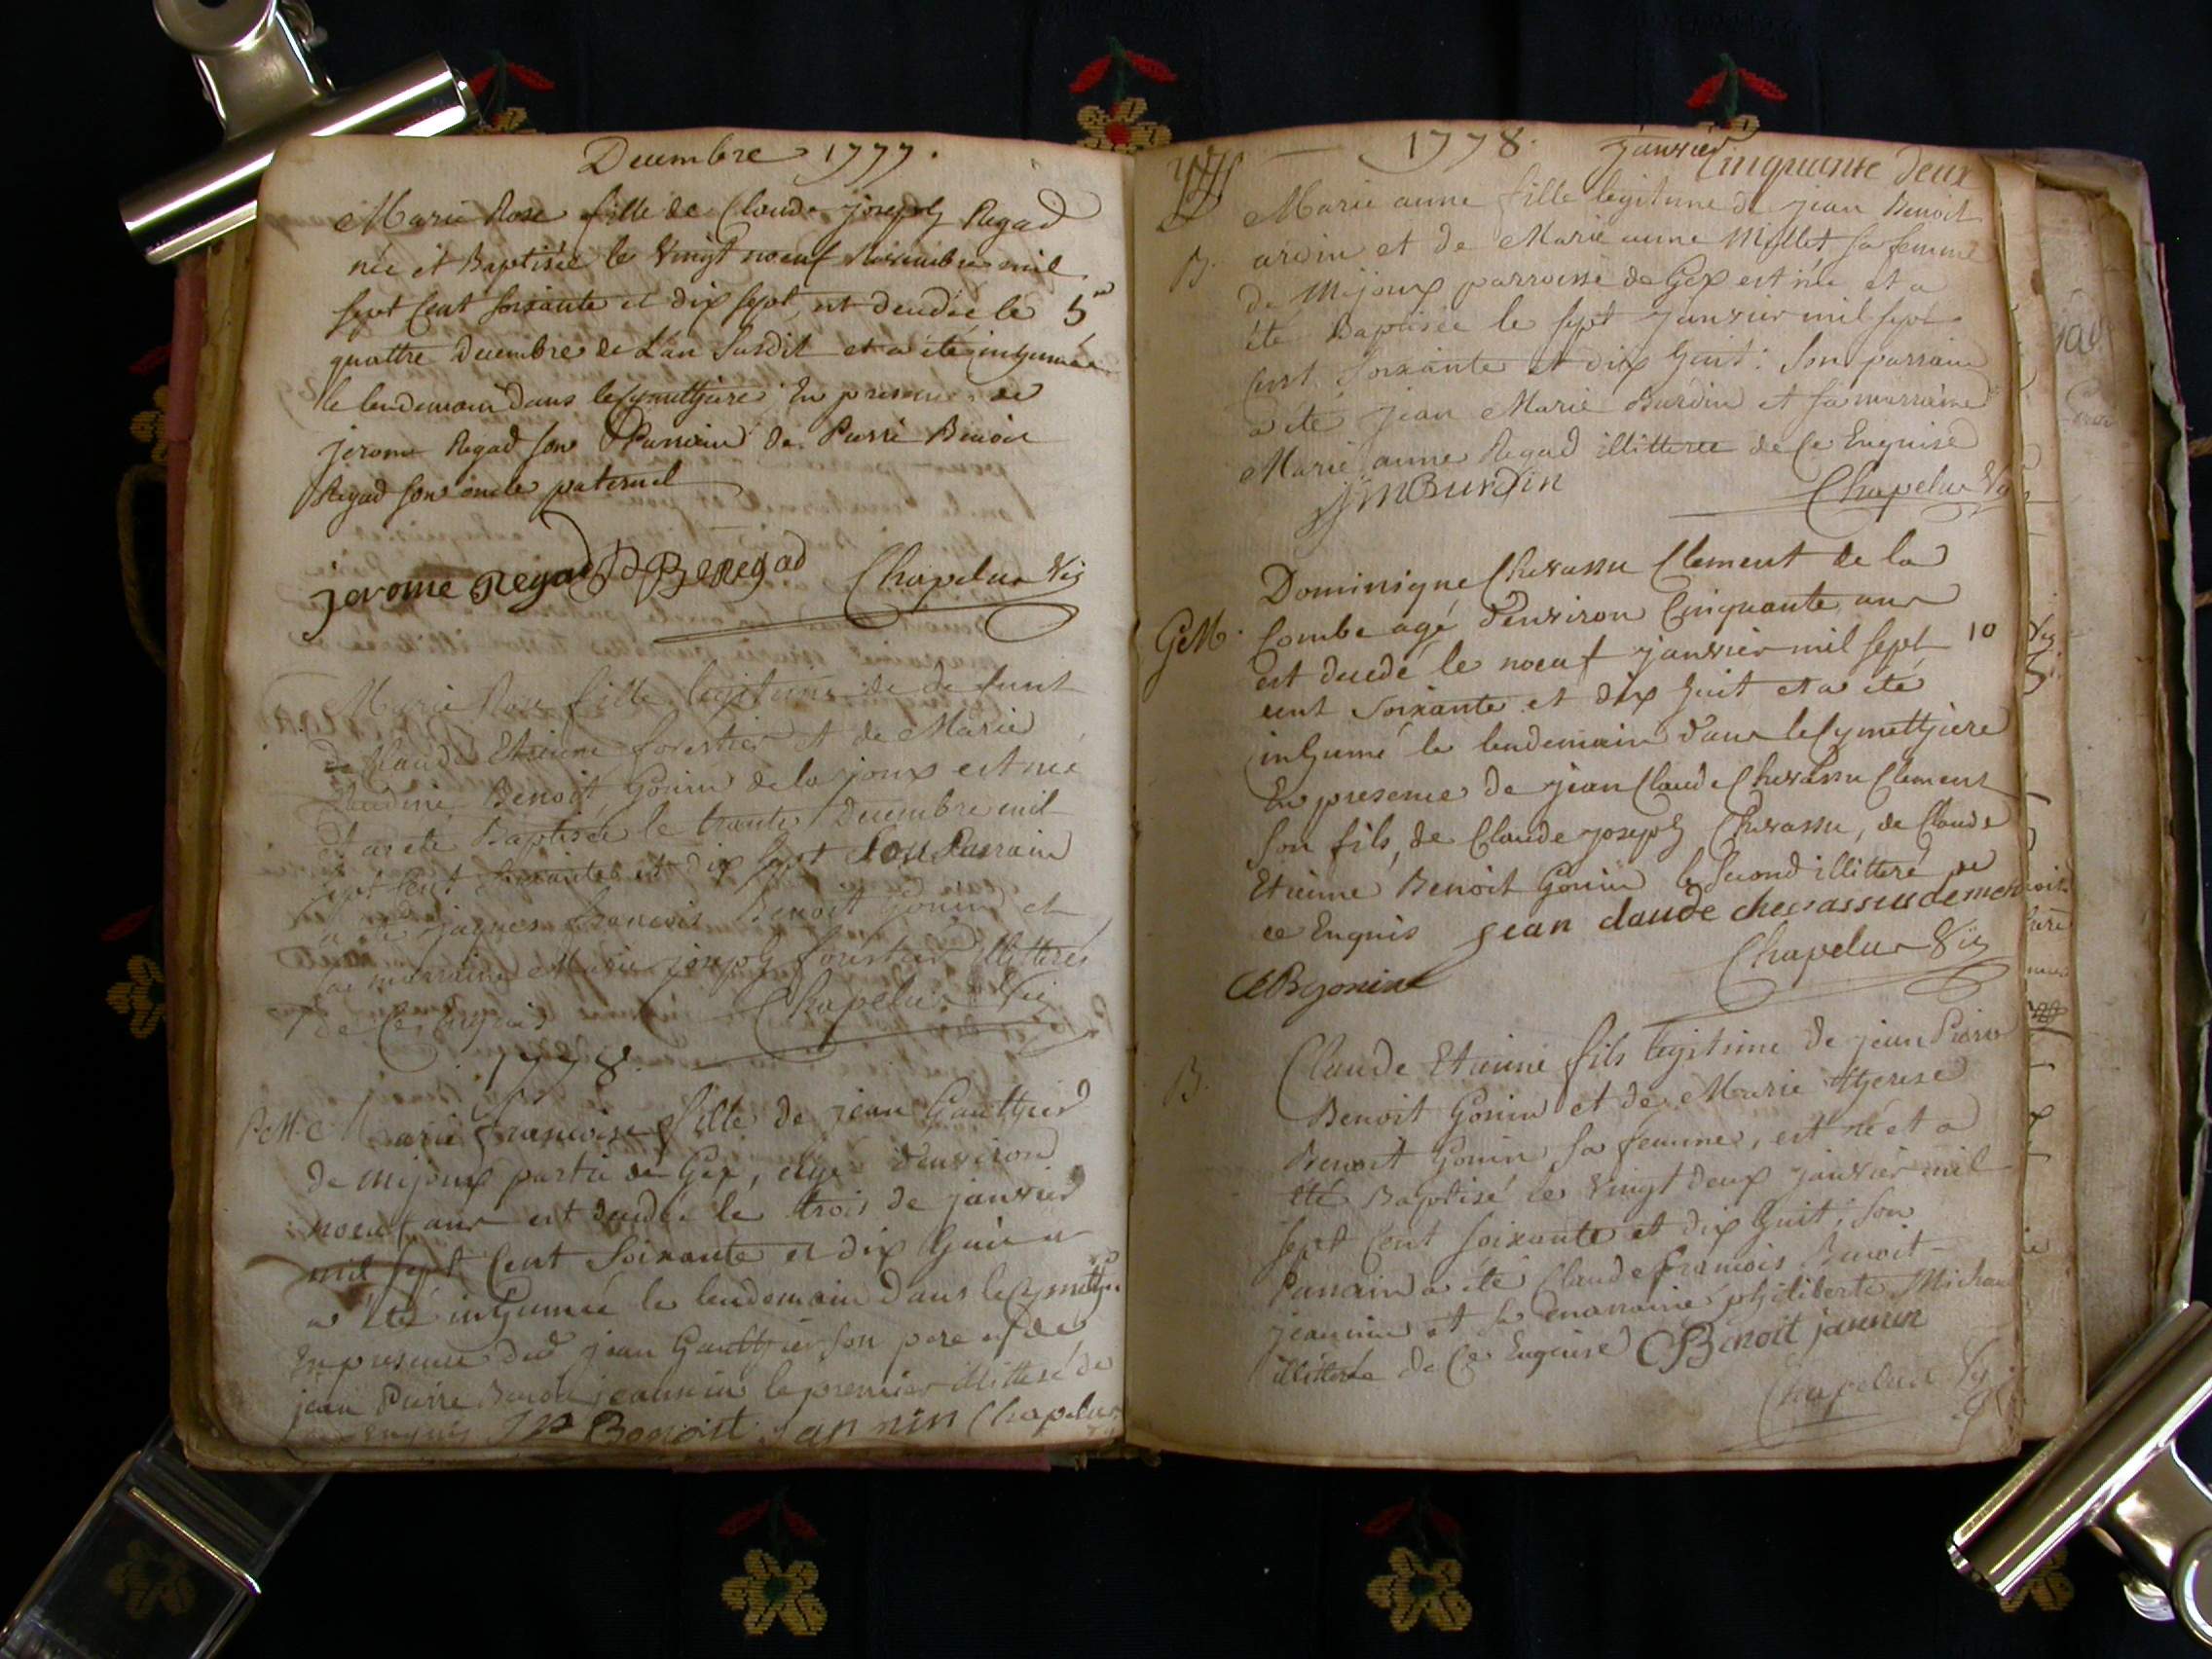 Decembre 1777.
Marie Rose fille de Claude joseph Regad
née et Baptisée le vingt noeuf Novembre mil
sept Cent soixante et dix sept, est decedée le 5
quattre Decembre de L'an Susdit et a été inhumée
le lendemain dans le Cymetthiere En presence de
jerome Regad son Parrain de Pierre Benoit
Regad son oncle paternel
jerome Regad PBe Regad Chapelux Vic
Marie Rose fille legitime de defunt
de Claude Etienne forestier et de Marie
Claudine Benoit Gonin de la joux est née
et a été Baptisée le trente Decembre mil
sept Cent soixante et dix sept Son Parrain
a été jaques francois Benoit Gonin et
sa marraine Marie joseph forestier illitterés
de Ce Enquis Chapelux Vic
1778.
P.M.C Marie francoise fille de jean Gautthier
de mijoux partie de Gex, agée d'environ
noeuf ans est decedée le trois de janvier
mil sept Cent Soixante et dix huit a
a été inhumée le lendemain dans le Cymetth
En presence dud jean Gautthier son pere et de
jean Pierre Benoit jeannin le premier illitteré de
ce Enquis JP Benoist jannin Chapelux
1778. janvier
Cinquante deux
Marie anne fille legitime de jean Benoit
B. ardin et de Marie anne Millet sa femme
de Mijoux parroisse de Gex est née et a
été Baptisée le sept janvier mil sept
Cent Soixante et dix huit. Son parrain
a été jean Marie Burdin et sa marraine
Marie anne Regad illitterée de Ce Enquise
JM Burdin Chapelux Vic
Dominique Chevassu Clement de la
G.M. Combe agé d'environ Cinquante ans
est decedé le noeuf janvier mil sept 10
cent Soixante et dix huit et a été
inhumé le lendemain dans le Cymetthiere
En presence de jean Claude Chevassu Clement
Son fils, de Claude joseph Chevassu, de Claude
Etienne Benoit Gonin le Second illitteré de
ce Enquis jean claude chevassus clement
CEBgonin Chapelux Vic
Claude Etienne fils legitime de jean Pierre
B. Benoit Gonin et de Marie therese
Benoit Gonin sa femme, est né et a
été Baptisé le vingt deux janvier mil
sept Cent soixante et dix huit, son
Parrain a été Claude francois Benoit
jeannin et sa marraine philiberte Michau
illitterée de Ce Enquise CfBenoit jannin
Chapelux